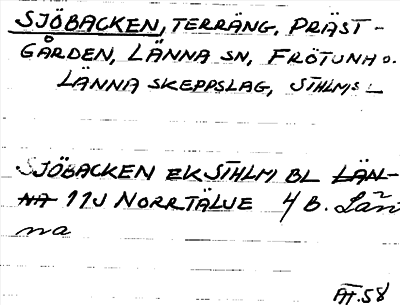 SJÖBACKEN, TERRÄNG, PRÄST-
GÅRDEN, LÄNNA SN, FRÖTUNA O.
LÄNNA SKEPPSLAG, STHLMS L
SJÖBACKEN EK STHLM BL LÄN-
NA 11J NORRTÄLJE 4 B. Län
na
ÄT.58